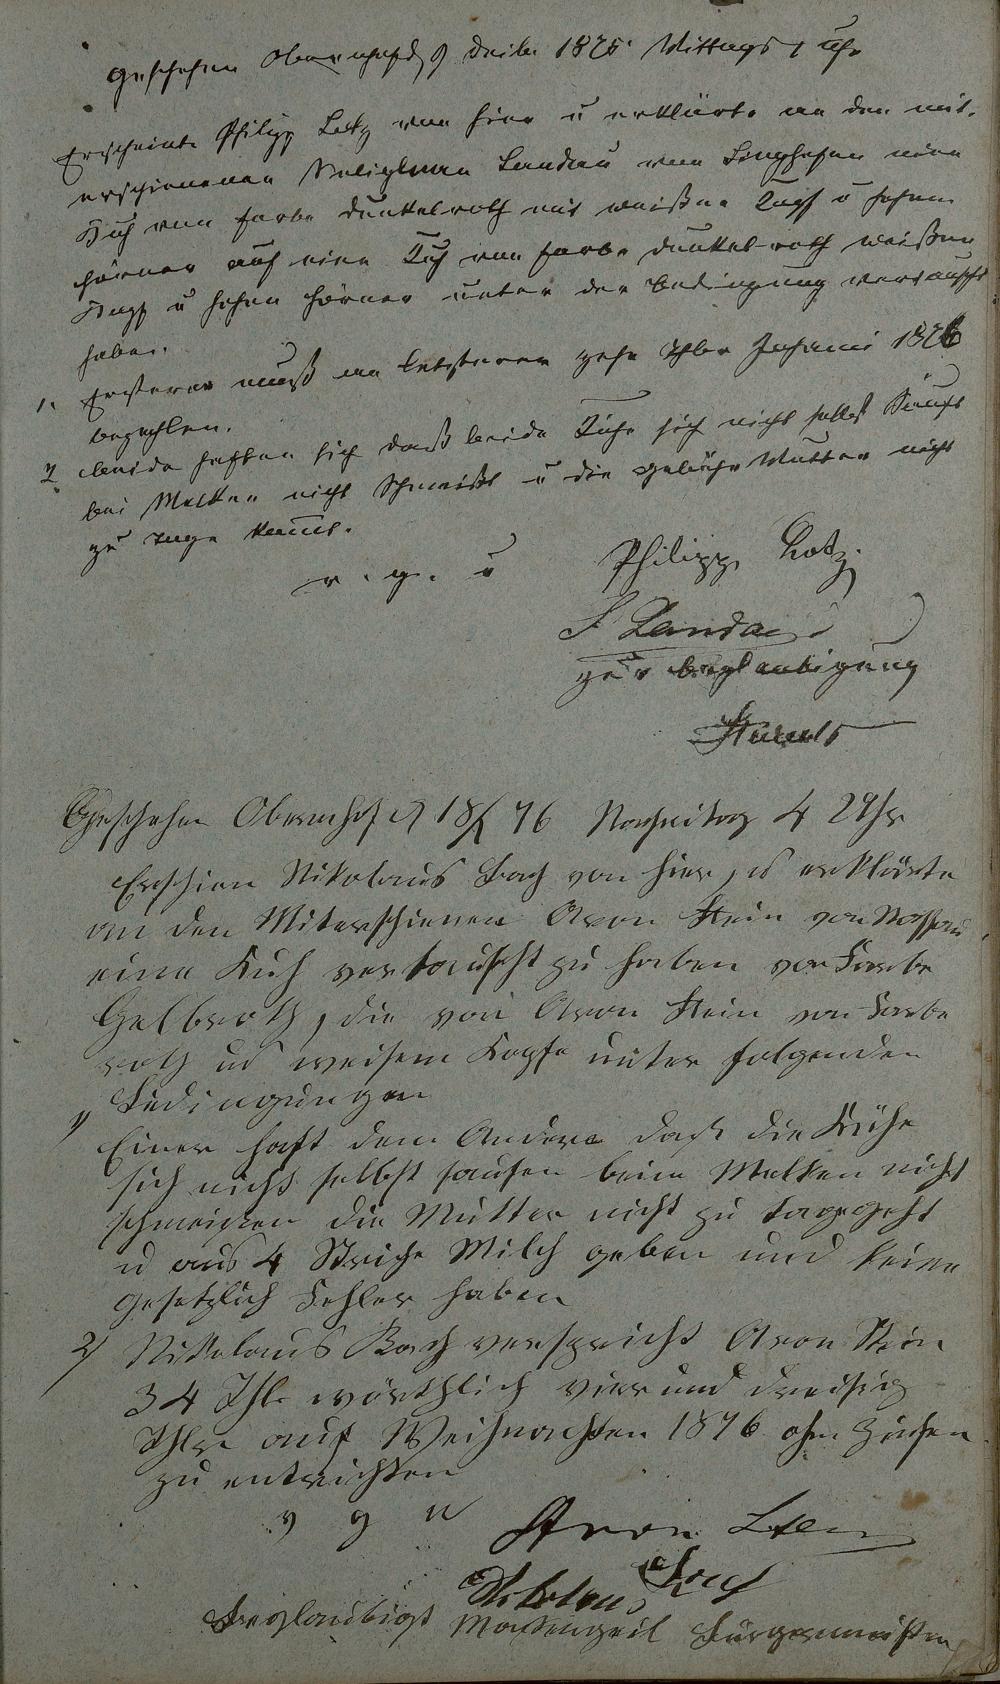 Geschehen Obernhof d 9 Dezbr 1875 Mittags 1 Uhr
Erscheint Philipp Lotz von hier u erklärte an den mit-
erschienenen Seligman Landau von Singhofen eine
Kuh von Farbe dunkelroth mit weißen Kopf u hohen
Hörner auf eine Kuh von Farbe dunkel-roth weißen
Kopf u hohen Hörner unter der Bedingung vertauscht
haben.
1. Ersterer muß an letzteren zehn Thlr Johanni 1876
bezahlen.
2. beide haften sich daß beide Kühe sich nicht selbst Sauft
bei Melken nicht Schmeißt u die Mutter nicht
zu tage kommt.
v. g. u
Philipp Lotz.
S Landau
zur beglaubigung
Geschehen Obernhof d 18/ 76 Nachmitag 4 Uhr
Erschien Nikolaus Bach von hier, u erklärte
an den Miterschienen Aron Stein von Nassau
eine Kuh vertauscht zu haben von Farbe
Gelbroth, die von Aron Stein von Farbe
roth u weisem Kopfe unter folgenden
Bedingungen
1) Einer haft dem Andern daß die Kühe
sich nicht selbst saufen beim Melken nicht
schmeißen die Mutter nicht zu tagegeht
u aus 4 Striche Milch geben und keine
gesetzlich Fehler haben
2) Nikolaus Bach verspricht Aron Stein
34 Thlr wörthlich vier und dreisig
Thlr auf Weihnachten 1876 ohne Zinsen
zu entrichten
v g u Aron Stein
Nikolaus Bach
Beglaubigt Massengeil Bürgermeister